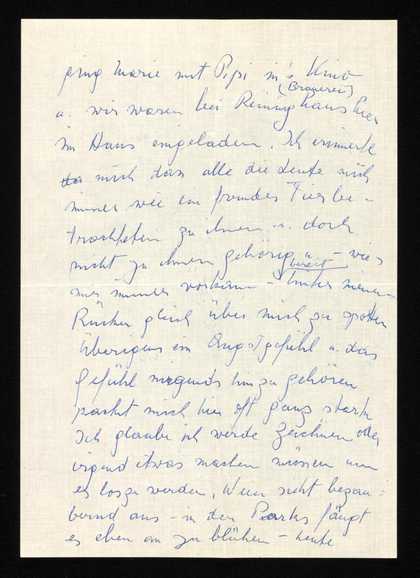 ging Marie mit Pipi in's Kino
(Brauerei)
u. wir waren bei Reininghaus hier
im Haus eingeladen. Ich erinnerte
mich dass alle die Leute mich
immer wie ein fremdes Tier be-
trachteten zu ihnen u. doch
nicht zu ihnen gehörig u. – wies
mir immer vorkam – bereit hinter meinem
Rücken gleich über mich zu spotten
übrigens ein Angstgefühl u. das
Gefühl nirgends hin zu gehören
packt mich hier oft ganz stark
Ich glaube ich werde zeichnen oder
irgend etwas machen müssen um
es loszuwerden. Wien sieht bezau-
bernd aus – in den Parks fängt
es eben an zu blühen – heute